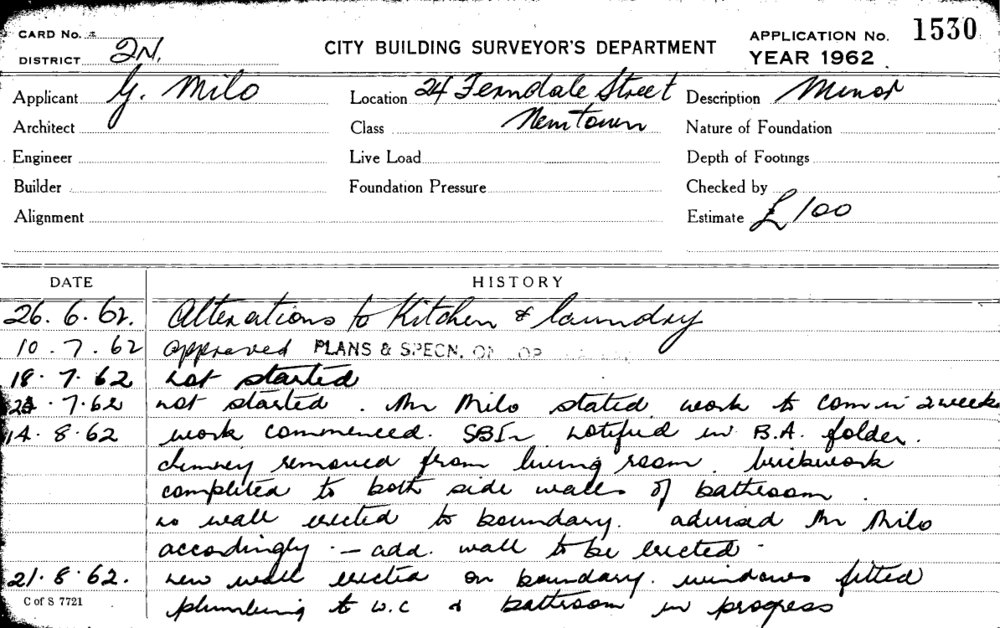 CARD No. 2
DISTRICT 2N.
CITY BUILDING SURVEYOR'S DEPARTMENT
APPLICATION No. 1530
YEAR 1962
Applicant G. Milo
Location 24 Ferndale Street
Description Minor
Architect
Class Newtown
Nature of Foundation
Engineer
Live Load
Depth of Footings
Builder
Foundation Pressure
Checked by
Alignment
Estimate £100
DATE HISTORY
26.6.62. Alterations to Kitchen & laundry
10.7.62 approved PLANS & SPECN.
18.7.62 not started
24.7.62 not started. Mr Milo stated work to com in 2 weeks
14.8.62 work commenced. SBI notified in B.A. folder.
chimney removed from living room. brickwork
completed to both side walls of bathroom.
no wall erected to boundary. advised Mr Milo
accordingly - add. wall to be erected.
21.8.62. new wall erected on boundary. windows fitted
plumbing to W.C & bathroom in progress
C of S 7721